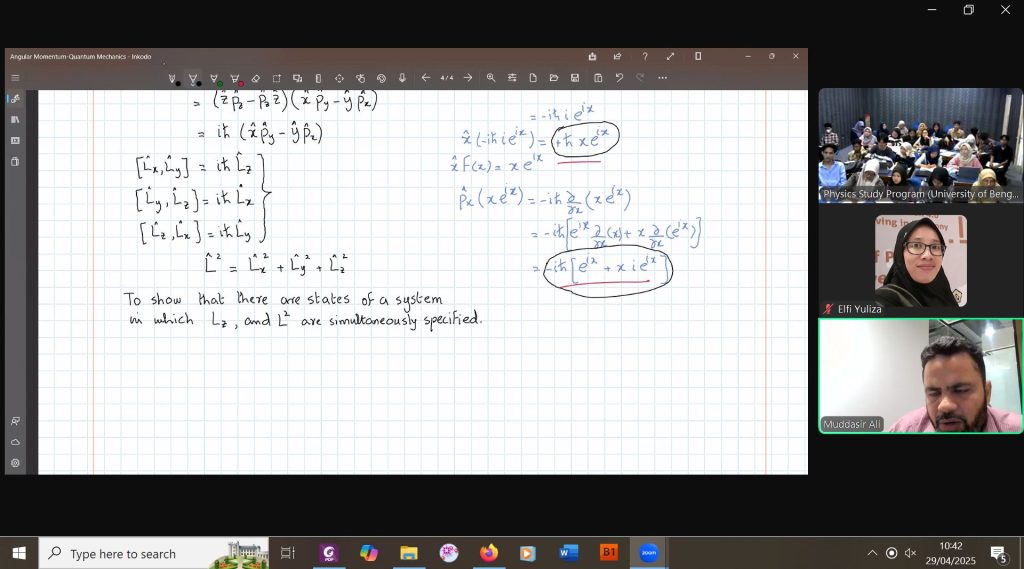 Angular Momentum-Quantum Mechanics - Inkodo
4/4
= (ẑ p̂z - p̂z ẑ) (x̂ p̂y - ŷ p̂x)
= iħ (x̂ p̂y - ŷ p̂x)
[L̂x, L̂y] = iħ L̂z
[L̂y, L̂z] = iħ L̂x
[L̂z, L̂x] = iħ L̂y
L̂² = L̂x² + L̂y² + L̂z²
To show that there are states of a system
in which Lz, and L² are simultaneously specified.
= -iħ i e^ix
x̂ (-iħ i e^ix) = +ħ x e^ix
x̂ F(x) = x e^ix
p̂x (x e^ix) = -iħ ∂/∂x (x e^ix)
= -iħ [e^ix ∂/∂x (x) + x ∂/∂x (e^ix)]
= -iħ [e^ix + x i e^ix]
Physics Study Program (University of Beng...
Elfi Yuliza
Muddasir Ali
Type here to search
PDF
B1
zoom
10:42
29/04/2025
5